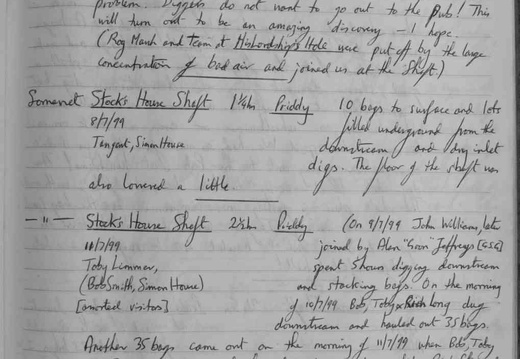 problem. Diggers do not want to go out to the Pub! This
will turn out to be an amazing discovery - I hope.
(Rog Marsh and team at HisLordship's Hole were put off by the large
concentration of bad air and joined us at the Shaft.)
Somerset Stock's House Shaft 1¼h Priddy 10 bags to surface and lots
8/7/99 filled underground from the
Tangent, Simon House downstream and dry inlet
digs. The floor of the shaft was
also lowered a little
—"— Stock's House Shaft 2½h Priddy (On 9/7/99 John Williams, later
11/7/99 joined by Alan "Goon" Jeffreys [GSG]
Toby Limmer, spent 5 hours digging downstream
(Bob Smith, Simon House) and stacking bags. On the morning
[assorted visitors] of 10/7/99 Bob, Toby & Rich Long dug
downstream and hauled out 35 bags.
Another 35 bags came out on the morning of 11/7/99 when Bob, Toby